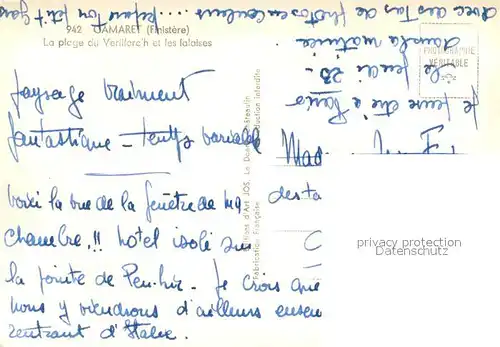 942 CAMARET (Finistère)
La plage du Veryhac'h et les falaises
PHOTOGRAPHIE
VÉRITABLE
paysage vraiment
fantastique - temps variable
voici la vue de la fenêtre de ma
chambre!! hotel isolé sur
la pointe de Pen-hir. Je crois que
nous y viendrons d'ailleurs
rentrant d'Italie.
Mad
Editions d'Art JOS.
Fabrication Française
Reproduction Interdite
je serai à Paris
le jeudi 23 -
dans la matinée
avec des tas de photos en couleurs
privacy protection
Datenschutz